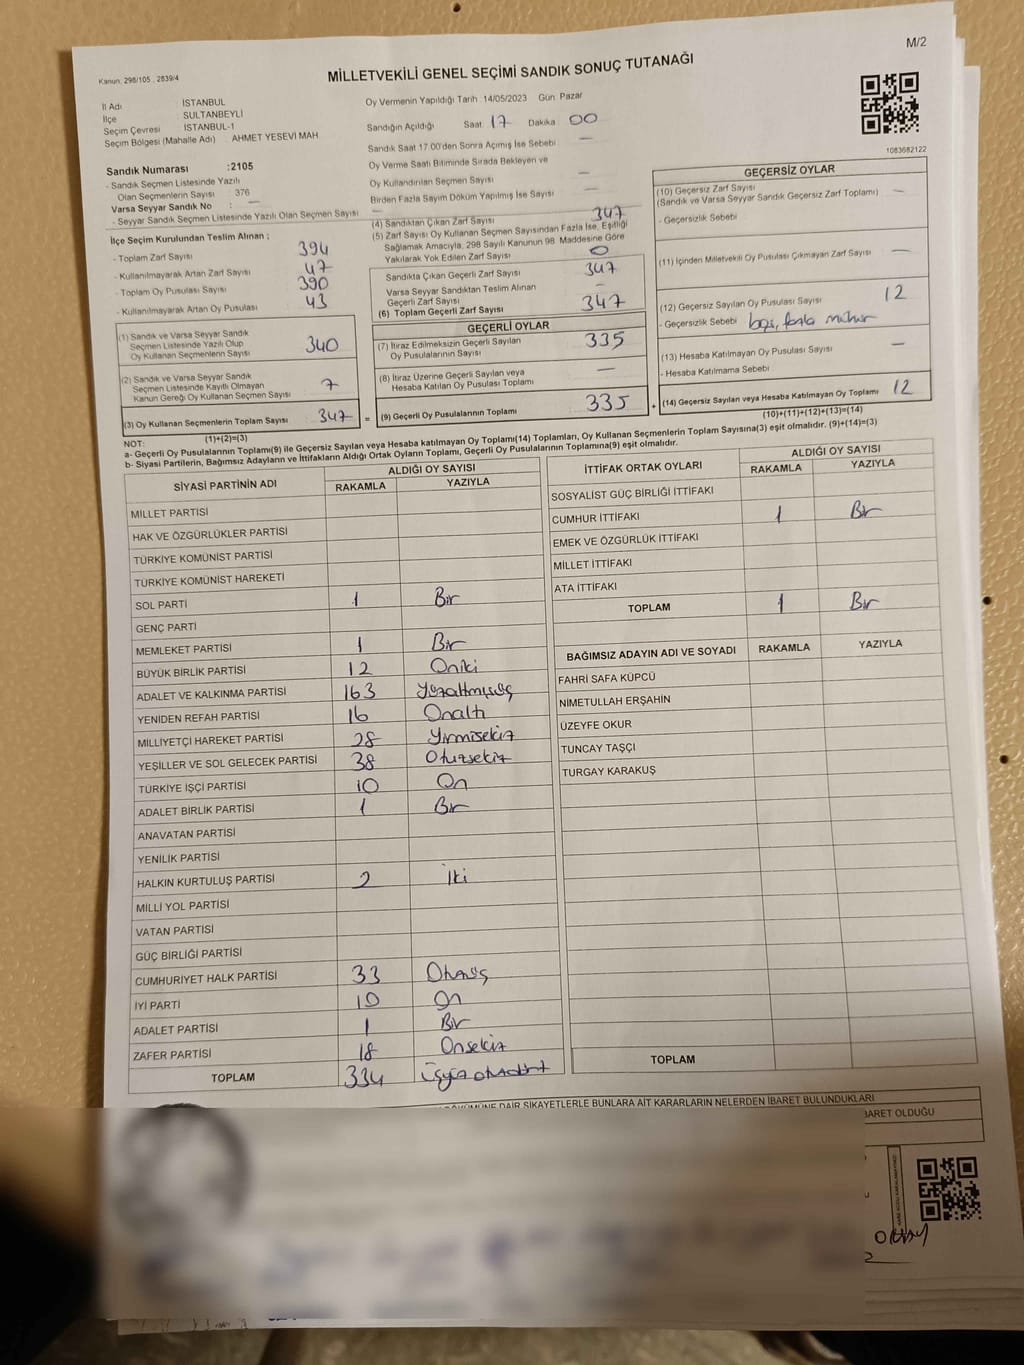 M/2
Kanun, 298/105 , 2839/4
MİLLETVEKİLİ GENEL SEÇİMİ SANDIK SONUÇ TUTANAĞI
İl Adı : İSTANBUL
İlçe : SULTANBEYLİ
Seçim Çevresi : İSTANBUL-1
Seçim Bölgesi (Mahalle Adı) : AHMET YESEVİ MAH.
Sandık Numarası :2105
- Sandık Seçmen Listesinde Yazılı
Olan Seçmenlerin Sayısı : 376
Varsa Seyyar Sandık No : —
- Seyyar Sandık Seçmen Listesinde Yazılı Olan Seçmen Sayısı —
Oy Vermenin Yapıldığı Tarih :14/05/2023 Gün: Pazar
Sandığın Açıldığı Saat 17 Dakika 00
Sandık Saat 17:00'den Sonra Açımış İse Sebebi —
Oy Verme Saati Bitiminde Sırada Bekleyen ve
Oy Kullandırılan Seçmen Sayısı —
Birden Fazla Sayım Döküm Yapılmış İse Sayısı —
1083682122
İlçe Seçim Kurulundan Teslim Alınan ;
- Toplam Zarf Sayısı 394
- Kullanılmayarak Artan Zarf Sayısı 47
- Toplam Oy Pusulası Sayısı 390
- Kullanılmayarak Artan Oy Pusulası 43
(1) Sandık ve Varsa Seyyar Sandık
Seçmen Listesinde Yazılı Olup
Oy Kullanan Seçmenlerin Sayısı 340
(2) Sandık ve Varsa Seyyar Sandık
Seçmen Listesinde Kayıtlı Olmayan
Kanun Gereği Oy Kullanan Seçmen Sayısı 7
(3) Oy Kullanan Seçmenlerin Toplam Sayısı 347 =
(1)+(2)=(3)
(4) Sandıktan Çıkan Zarf Sayısı 347
(5) Zarf Sayısı Oy Kullanan Seçmen Sayısından Fazla İse, Eşitliği
Sağlamak Amacıyla, 298 Sayılı Kanunun 98. Maddesine Göre
Yakılarak Yok Edilen Zarf Sayısı 0
Sandıkta Çıkan Geçerli Zarf Sayısı 347
Varsa Seyyar Sandıktan Teslim Alınan
Geçerli Zarf Sayısı —
(6) Toplam Geçerli Zarf Sayısı 347
GEÇERLİ OYLAR
(7) İtiraz Edilmeksizin Geçerli Sayılan
Oy Pusulalarının Sayısı 335
(8) İtiraz Üzerine Geçerli Sayılan veya
Hesaba Katılan Oy Pusulası Toplamı —
(9) Geçerli Oy Pusulalarının Toplamı 335 +
GEÇERSİZ OYLAR
(10) Geçersiz Zarf Sayısı
(Sandık ve Varsa Seyyar Sandık Geçersiz Zarf Toplamı) —
- Geçersizlik Sebebi
(11) İçinden Milletvekili Oy Pusulası Çıkmayan Zarf Sayısı —
(12) Geçersiz Sayılan Oy Pusulası Sayısı 12
- Geçersizlik Sebebi boş, fazla mühür
(13) Hesaba Katılmayan Oy Pusulası Sayısı —
- Hesaba Katılmama Sebebi
(14) Geçersiz Sayılan veya Hesaba Katılmayan Oy Toplamı 12
(10)+(11)+(12)+(13)=(14)
NOT:
a- Geçerli Oy Pusulalarının Toplamı(9) ile Geçersiz Sayılan veya Hesaba katılmayan Oy Toplamı(14) Toplamları, Oy Kullanan Seçmenlerin Toplam Sayısına(3) eşit olmalıdır. (9)+(14)=(3)
b- Siyasi Partilerin, Bağımsız Adayların ve İttifakların Aldığı Ortak Oyların Toplamı, Geçerli Oy Pusulalarının Toplamına(9) eşit olmalıdır.
SİYASİ PARTİNİN ADI ALDIĞI OY SAYISI
RAKAMLA YAZIYLA
MİLLET PARTİSİ
HAK VE ÖZGÜRLÜKLER PARTİSİ
TÜRKİYE KOMÜNİST PARTİSİ
TÜRKİYE KOMÜNİST HAREKETİ
SOL PARTİ 1 Bir
GENÇ PARTİ
MEMLEKET PARTİSİ 1 Bir
BÜYÜK BİRLİK PARTİSİ 12 Oniki
ADALET VE KALKINMA PARTİSİ 163 Yüzaltmışüç
YENİDEN REFAH PARTİSİ 16 Onaltı
MİLLİYETÇİ HAREKET PARTİSİ 28 Yirmisekiz
YEŞİLLER VE SOL GELECEK PARTİSİ 38 Otuzsekiz
TÜRKİYE İŞÇİ PARTİSİ 10 On
ADALET BİRLİK PARTİSİ 1 Bir
ANAVATAN PARTİSİ
YENİLİK PARTİSİ
HALKIN KURTULUŞ PARTİSİ 2 İki
MİLLİ YOL PARTİSİ
VATAN PARTİSİ
GÜÇ BİRLİĞİ PARTİSİ
CUMHURİYET HALK PARTİSİ 33 Otuzüç
İYİ PARTİ 10 On
ADALET PARTİSİ 1 Bir
ZAFER PARTİSİ 18 Onsekiz
TOPLAM 334 üçyüzotuzdört
İTTİFAK ORTAK OYLARI ALDIĞI OY SAYISI
RAKAMLA YAZIYLA
SOSYALİST GÜÇ BİRLİĞİ İTTİFAKI
CUMHUR İTTİFAKI 1 Bir
EMEK VE ÖZGÜRLÜK İTTİFAKI
MİLLET İTTİFAKI
ATA İTTİFAKI
TOPLAM 1 Bir
BAĞIMSIZ ADAYIN ADI VE SOYADI RAKAMLA YAZIYLA
FAHRİ SAFA KÜPCÜ
NİMETULLAH ERŞAHİN
ÜZEYFE OKUR
TUNCAY TAŞÇI
TURGAY KARAKUŞ
TOPLAM
DÖKÜMÜNE DAİR ŞİKAYETLERLE BUNLARA AİT KARARLARIN NELERDEN İBARET BULUNDUKLARI
İBARET OLDUĞU